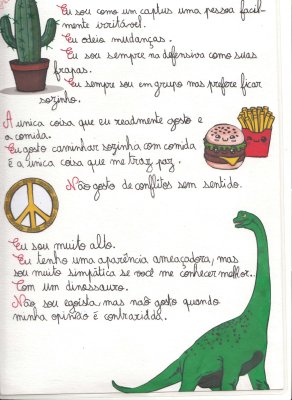 Eu sou como um captus uma pessoa facil-
mente irritável.
Eu odeio mudanças.
Eu sou sempre na defensiva como suas
frapas.
Eu sempre sou em grupo mas prefere ficar
sozinho.
A unica coisa que eu readmente gosto e
a comida.
Eu gosto caminhar sozinha com comida
é a unica coisa que me traz paz.
Não gosto de conflitos sem sentido.
Eu sou muito alto.
Eu tenho uma aparência ameaçadora, mas
sou muito simpática se você me conhecer malhor...
Com um dinossauro.
Não sou egoísta, mas não gosto quando
minha opinião é contrariddá.